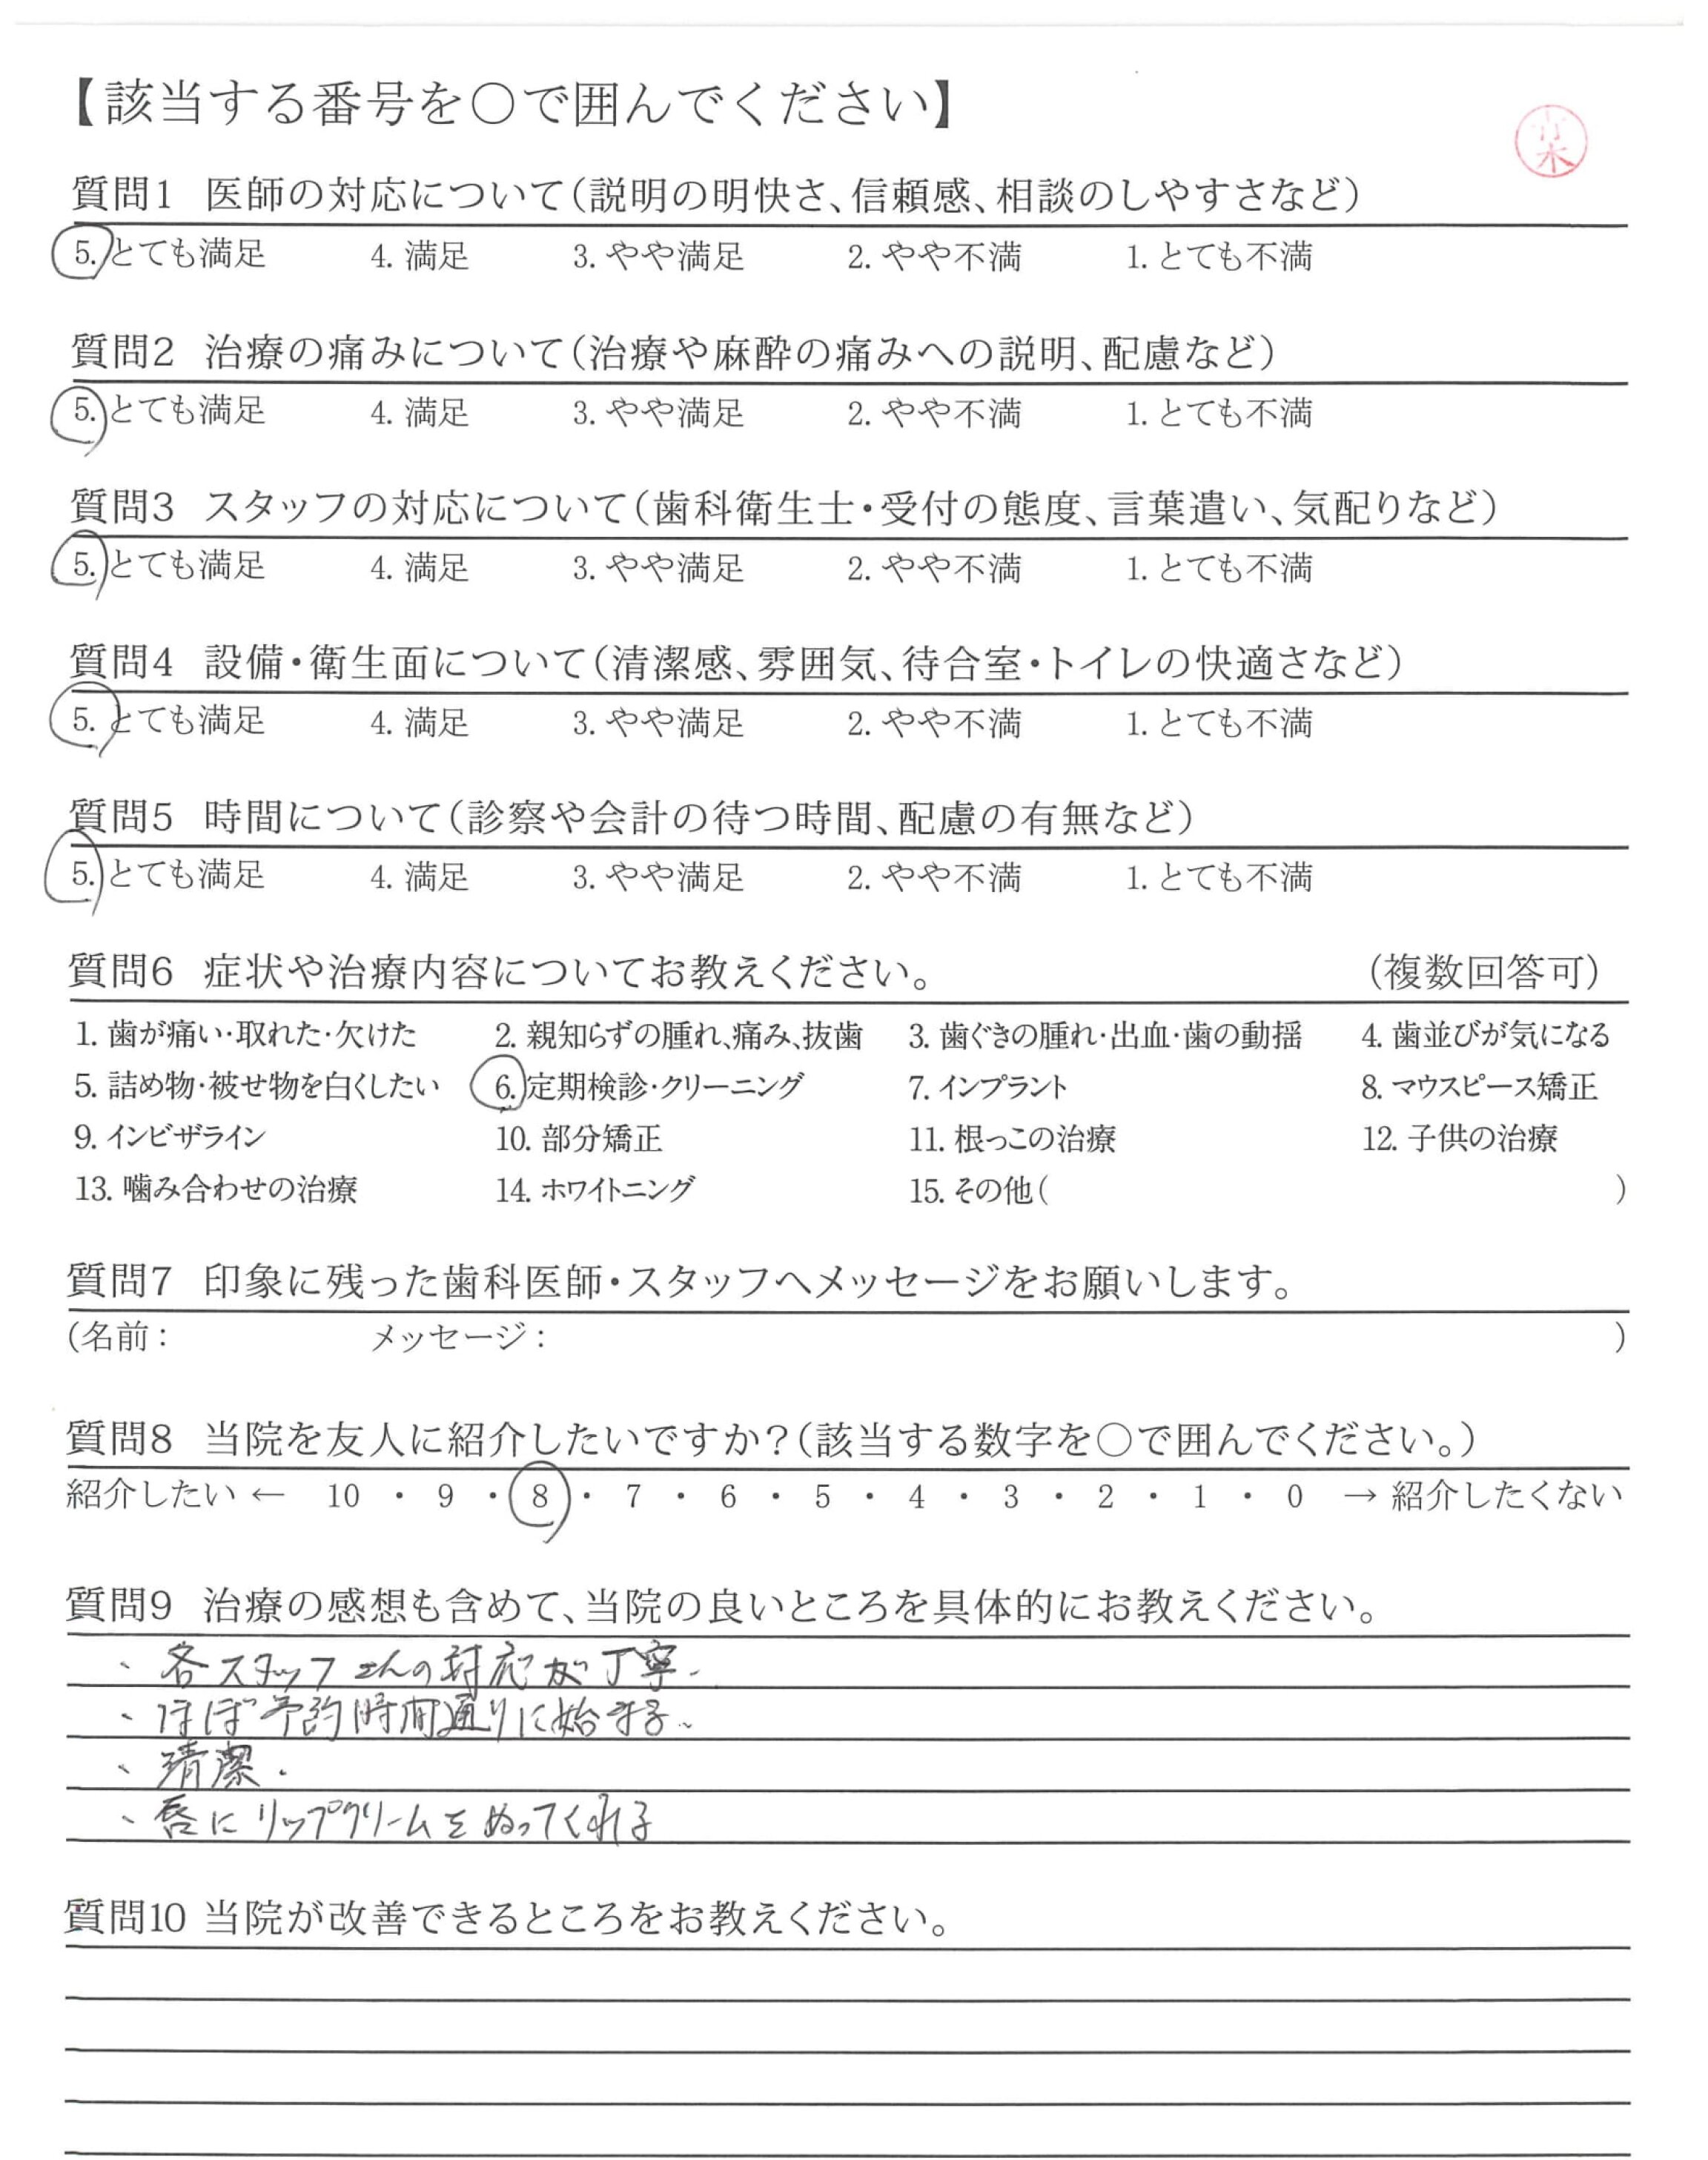 【該当する番号を○で囲んでください】
質問1 医師の対応について(説明の明快さ、信頼感、相談のしやすさなど)
5. とても満足 4. 満足 3. やや満足 2. やや不満 1. とても不満
質問2 治療の痛みについて(治療や麻酔の痛みへの説明、配慮など)
5. とても満足 4. 満足 3. やや満足 2. やや不満 1. とても不満
質問3 スタッフの対応について(歯科衛生士・受付の態度、言葉遣い、気配りなど)
5. とても満足 4. 満足 3. やや満足 2. やや不満 1. とても不満
質問4 設備・衛生面について(清潔感、雰囲気、待合室・トイレの快適さなど)
5. とても満足 4. 満足 3. やや満足 2. やや不満 1. とても不満
質問5 時間について(診察や会計の待つ時間、配慮の有無など)
5. とても満足 4. 満足 3. やや満足 2. やや不満 1. とても不満
質問6 症状や治療内容についてお教えください。 (複数回答可)
1. 歯が痛い・取れた・欠けた 2. 親知らずの腫れ、痛み、抜歯 3. 歯ぐきの腫れ・出血・歯の動揺 4. 歯並びが気になる
5. 詰め物・被せ物を白くしたい 6. 定期検診・クリーニング 7. インプラント 8. マウスピース矯正
9. インビザライン 10. 部分矯正 11. 根っこの治療 12. 子供の治療
13. 噛み合わせの治療 14. ホワイトニング 15. その他( )
質問7 印象に残った歯科医師・スタッフへメッセージをお願いします。
(名前: メッセージ: )
質問8 当院を友人に紹介したいですか?(該当する数字を○で囲んでください。)
紹介したい ← 10 ・ 9 ・ 8 ・ 7 ・ 6 ・ 5 ・ 4 ・ 3 ・ 2 ・ 1 ・ 0 → 紹介したくない
質問9 治療の感想も含めて、当院の良いところを具体的にお教えください。
、各スタッフさんの対応が丁寧.
、ほぼ予約時間通りに始まる.
、清潔.
、唇にリップクリームをぬってくれる
質問10 当院が改善できるところをお教えください。